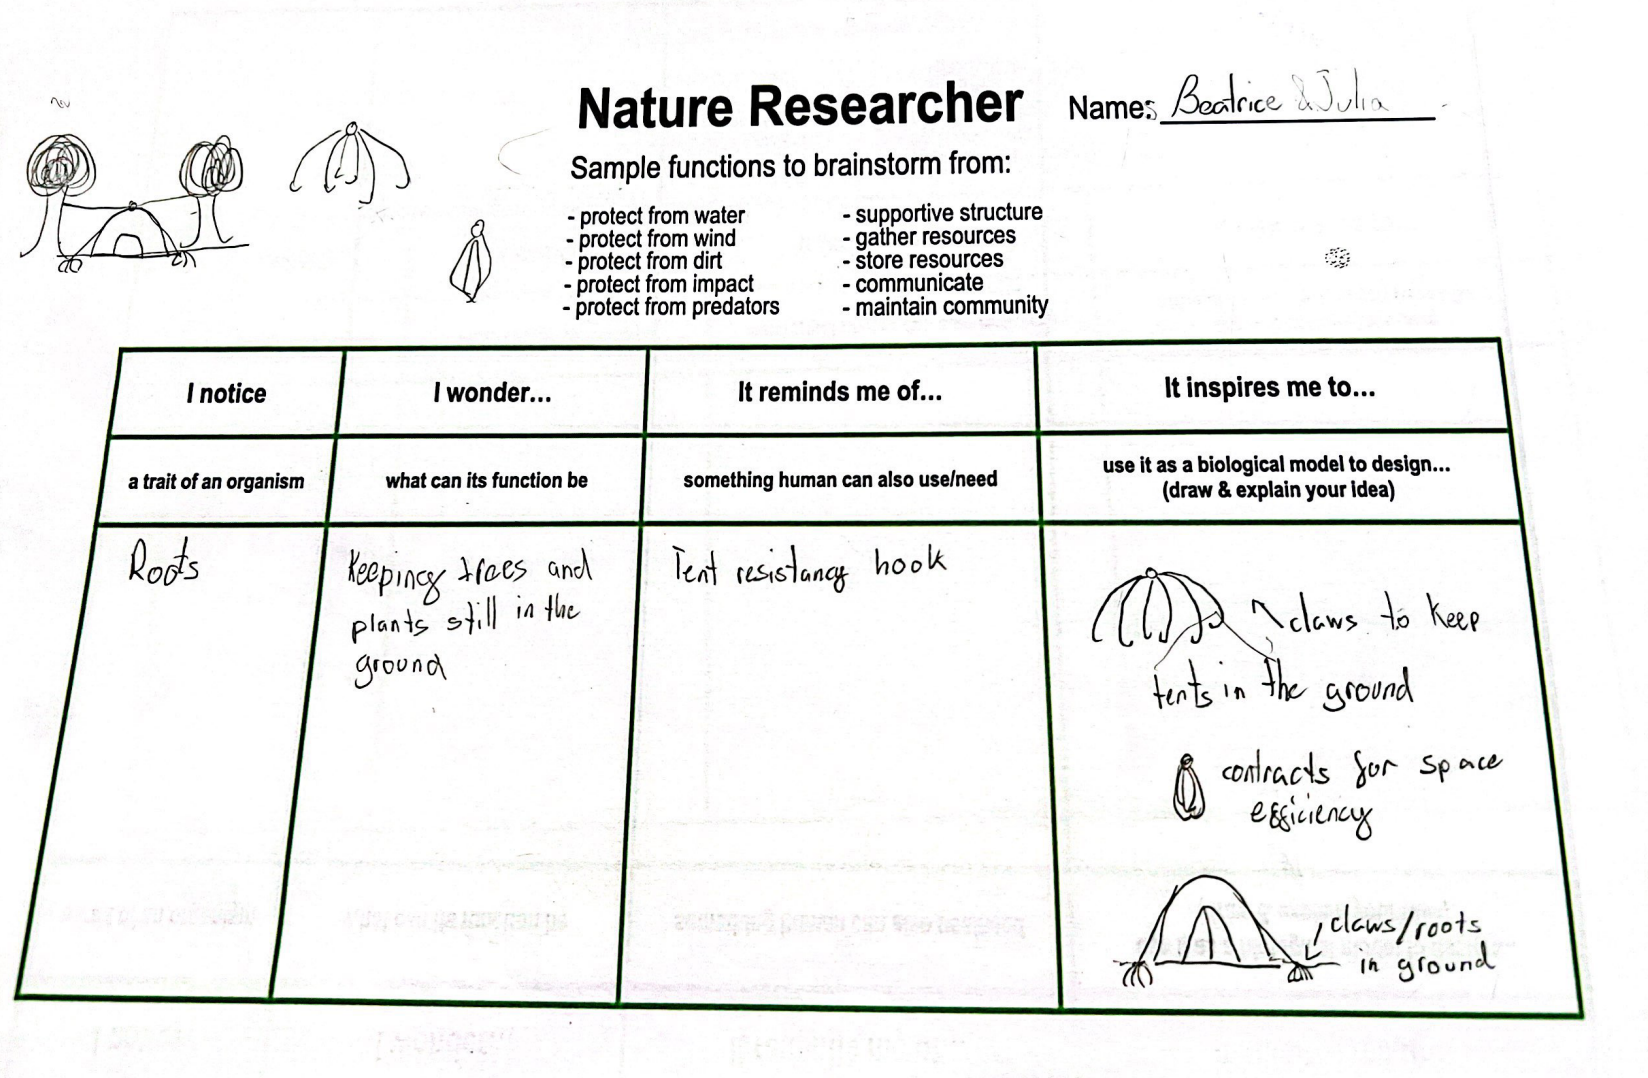 Nature Researcher
Names Beatrice & Julia
Sample functions to brainstorm from:
- protect from water
- protect from wind
- protect from dirt
- protect from impact
- protect from predators
- supportive structure
- gather resources
- store resources
- communicate
- maintain community
I notice
I wonder...
It reminds me of...
It inspires me to...
a trait of an organism
what can its function be
something human can also use/need
use it as a biological model to design...
(draw & explain your idea)
Roots
Keeping trees and
plants still in the
ground
Tent resistancy hook
claws to keep
tents in the ground
contracts for space
efficiency
claws/roots
in ground